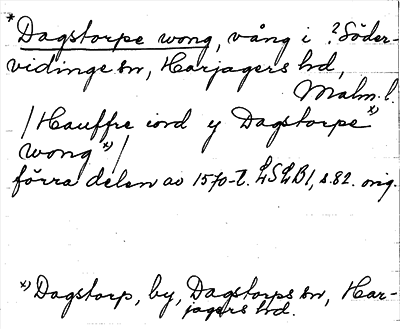 *Dagstorpe wong, vång i ?Söder-
vidinge sn, Harjagers hd,
Malm. l.
/Hauffre iord y Dagstorpe
wong x)/
x)
förra delen av 1570-t. LSLB1, s. 82. orig.
x) Dagstorp, by, Dagstorps sn, Har-
jagers hd.